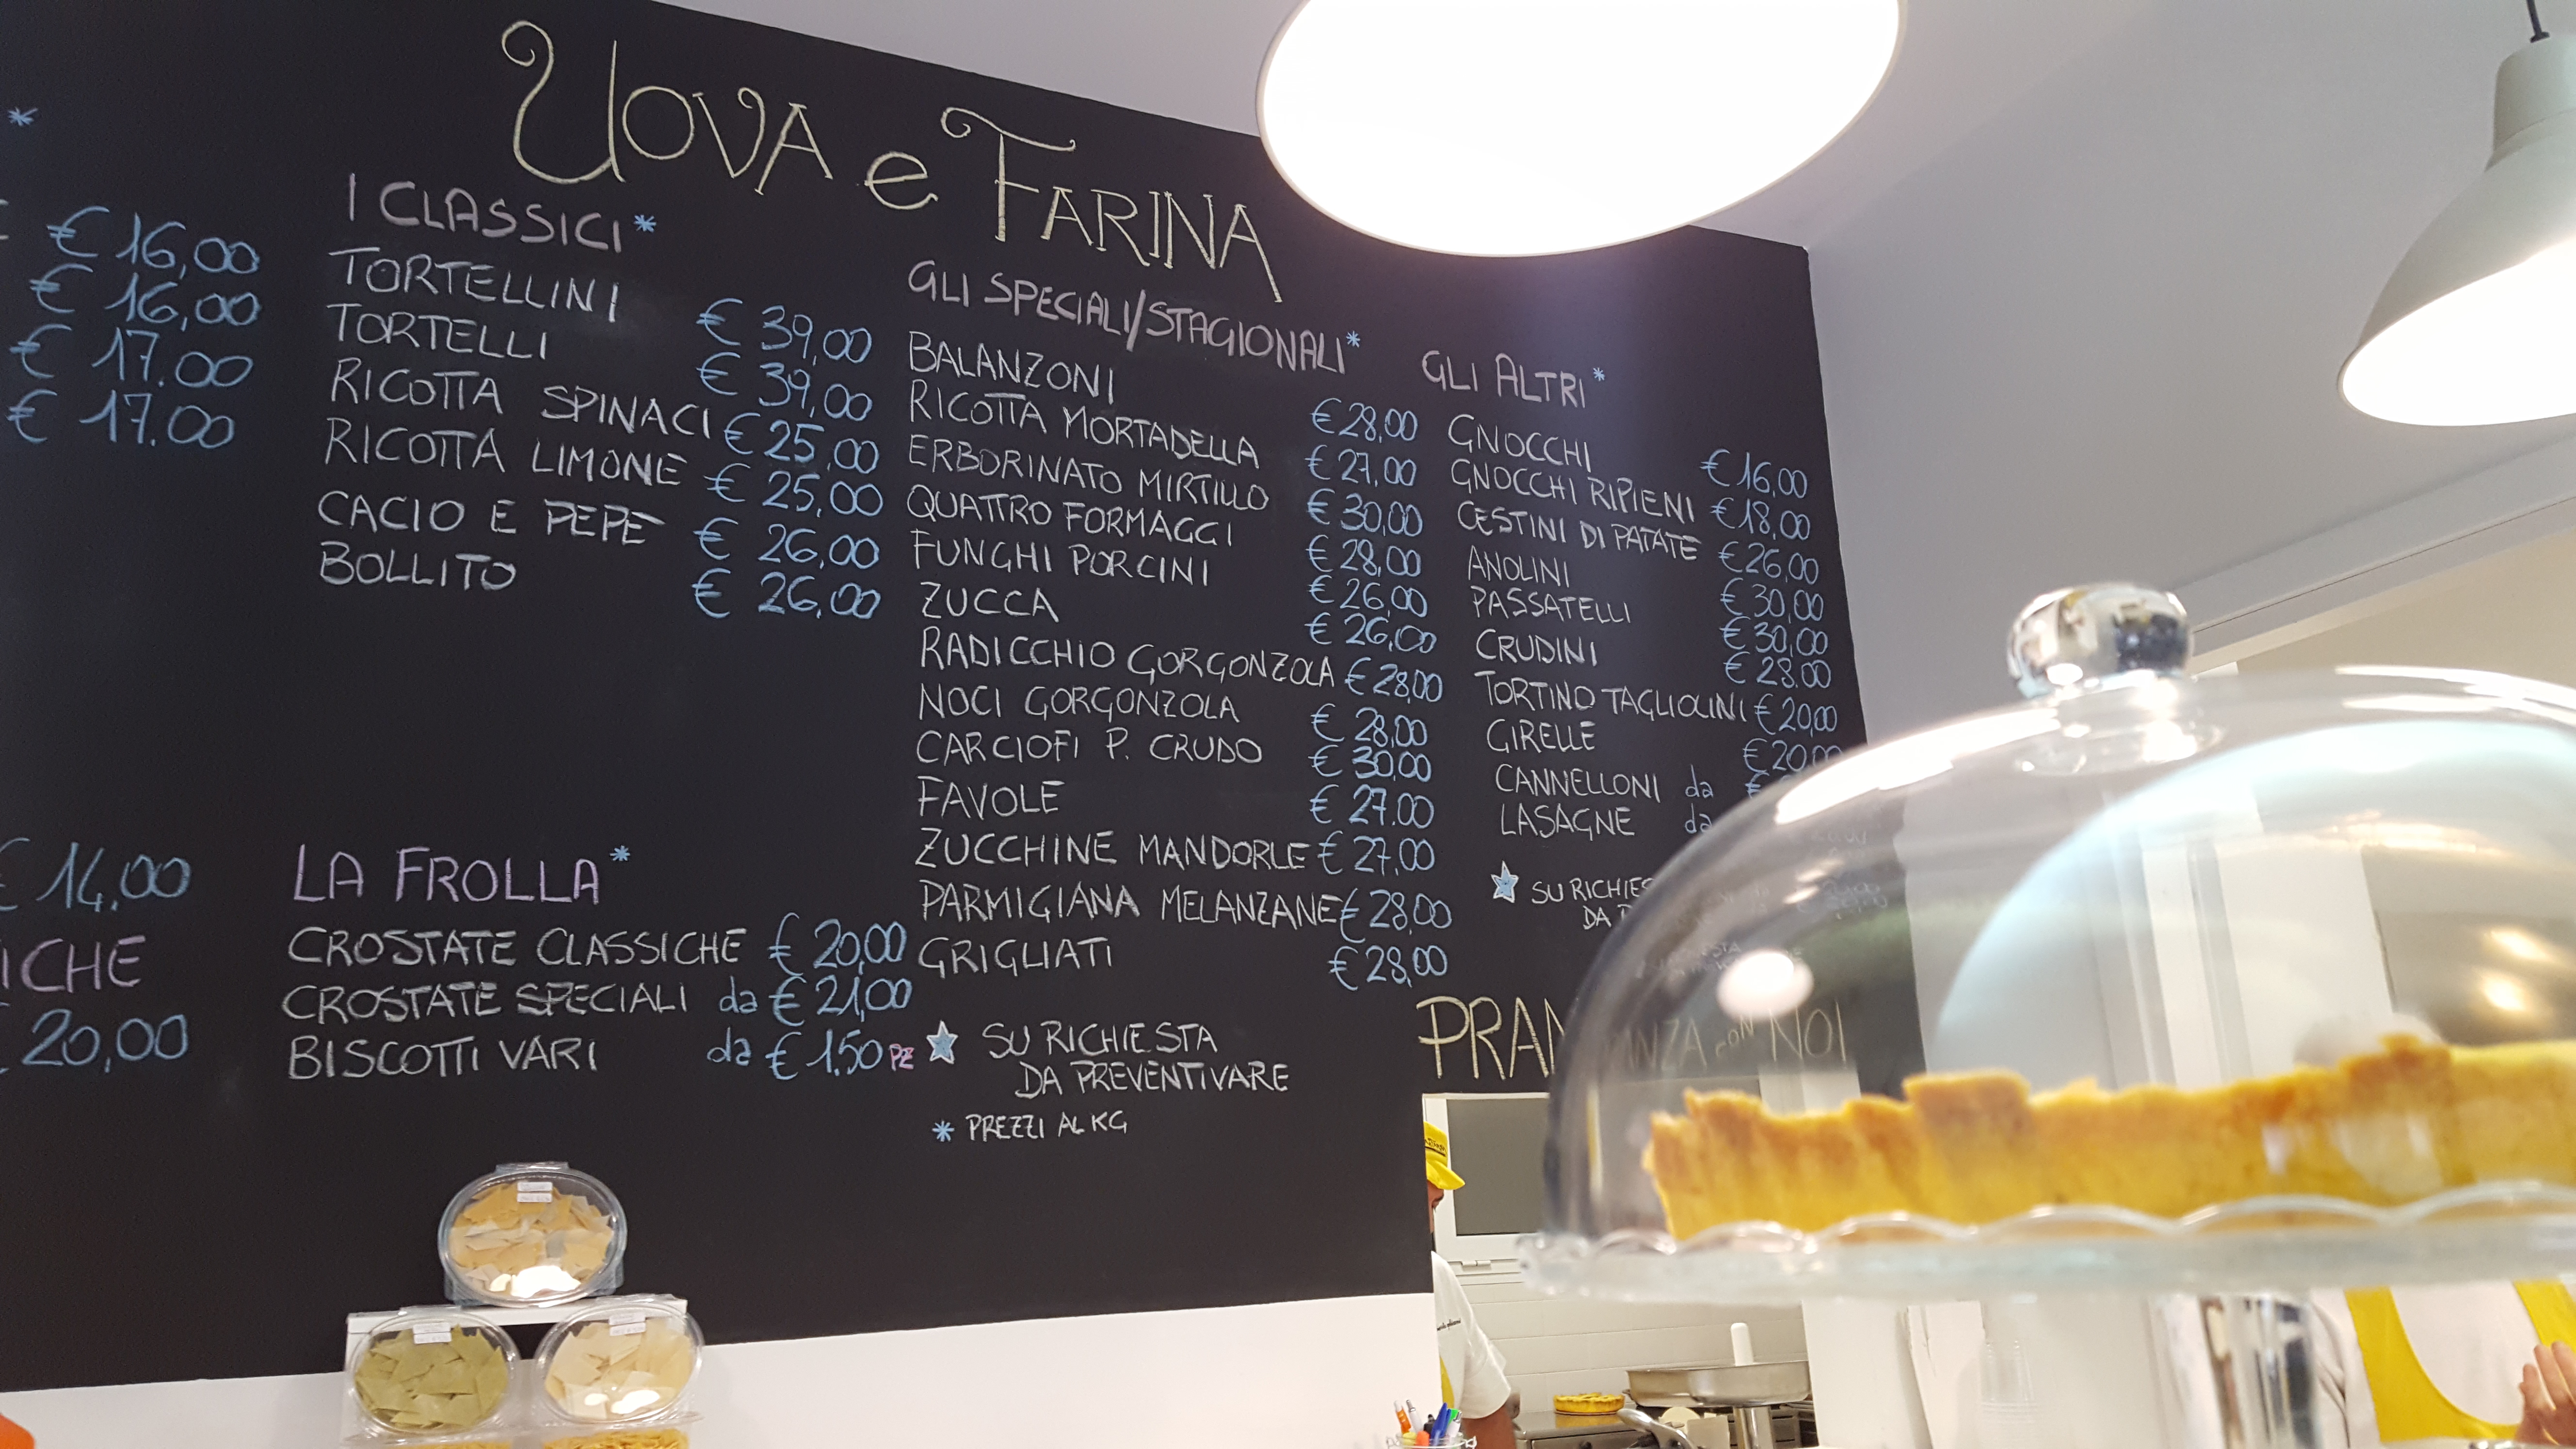 UOVA e FARINA
*
€ 16,00
€ 16,00
€ 17.00
€ 17.00
€ 14,00
ICHE
20,00
I CLASSICI*
TORTELLINI € 39,00
TORTELLI € 39,00
RICOTTA SPINACI € 25,00
RICOTTA LIMONE € 25,00
CACIO E PEPE € 26,00
BOLLITO € 26,00
LA FROLLA*
CROSTATE CLASSICHE € 20,00
CROSTATE SPECIALI da € 21,00
BISCOTTI VARI da € 1,50 PZ
GLI SPECIALI/STAGIONALI*
BALANZONI € 28,00
RICOTTA MORTADELLA € 27,00
ERBORINATO MIRTILLO € 30,00
QUATTRO FORMAGGI € 28,00
FUNGHI PORCINI € 26,00
ZUCCA € 26,00
RADICCHIO GORGONZOLA € 28,00
NOCI GORGONZOLA € 28,00
CARCIOFI P. CRUDO € 30,00
FAVOLE € 27.00
ZUCCHINE MANDORLE € 27,00
PARMIGIANA MELANZANE € 28,00
GRIGLIATI € 28,00
SU RICHIESTA
DA PREVENTIVARE
* PREZZI AL KG
GLI ALTRI*
GNOCCHI € 16,00
GNOCCHI RIPIENI € 18,00
CESTINI DI PATATE € 26,00
ANOLINI € 30,00
PASSATELLI € 30,00
CRUDINI € 28.00
TORTINO TAGLIOLINI € 20,00
GIRELLE € 20,00
CANNELLONI da €
LASAGNE da
SU RICHIES
DA
PRAN NZA CON NOI